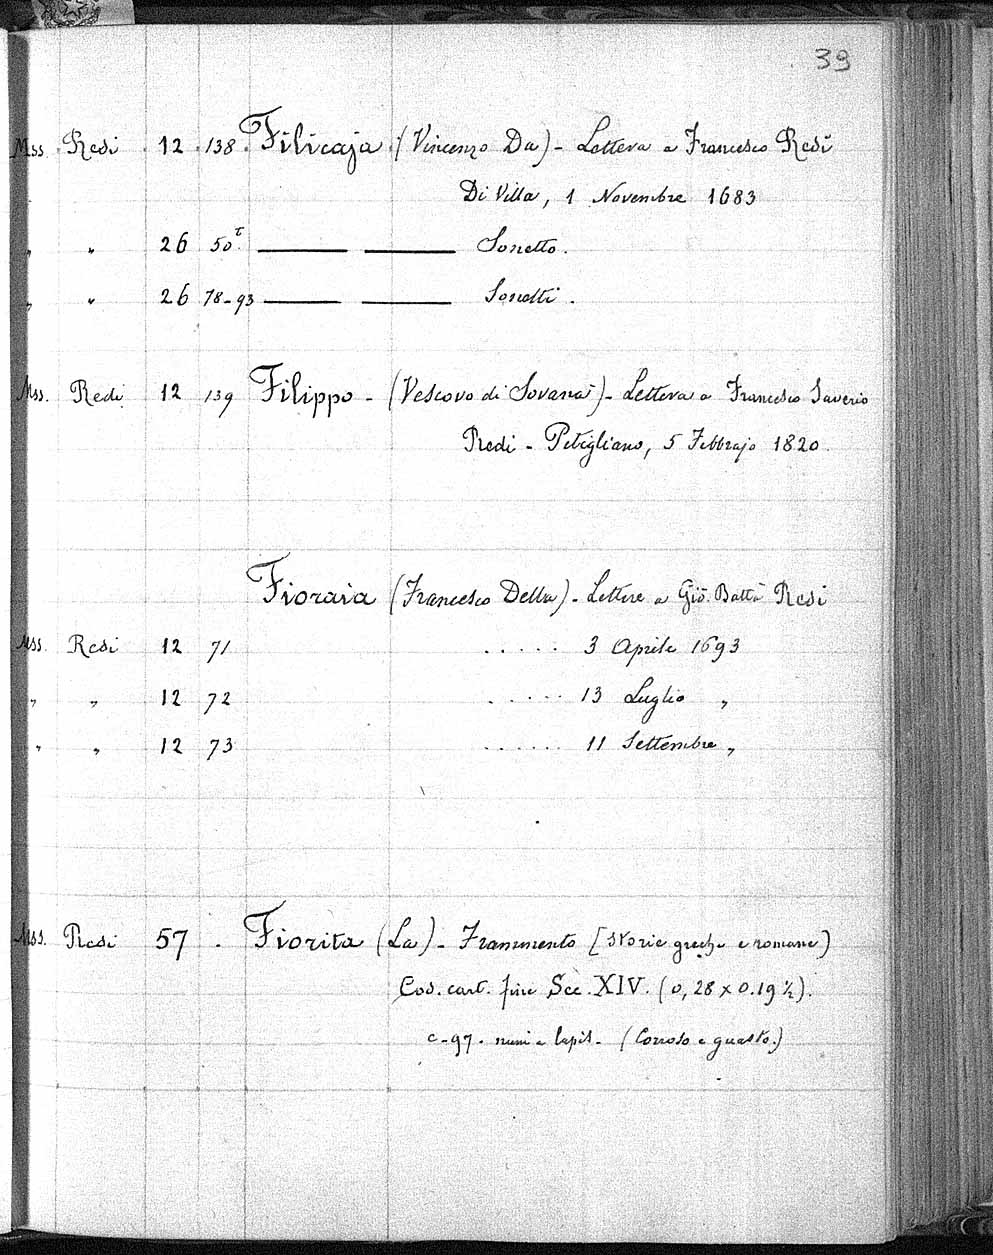 39
Mss. Redi 12 138 Filicaja (Vincenzo Da) - Lettera a Francesco Redi
Di Villa, 1 Novembre 1683
„ „ 26 50t. —— —— Sonetto.
„ „ 26 78-93 —— —— Sonetti.
Mss. Redi 12 139 Filippo - (Vescovo di Sovana) - Lettera a Francesco Saverio
Redi - Pitigliano, 5 Febbrajo 1820.
Fioraia (Francesco Della) - Lettere a Gio. Batta Redi
Mss. Redi 12 71 ..... 3 Aprile 1693
„ „ 12 72 ..... 13 Luglio „
„ „ 12 73 ...... 11 Settembre „
Mss. Redi 57 . Fiorita (La) - Frammento [Storie greche e romane)
Cod. cart. fine Sec. XIV. (0,28 x 0.19 ½).
c-97. num. a lapis - (Corroso e guasto.)